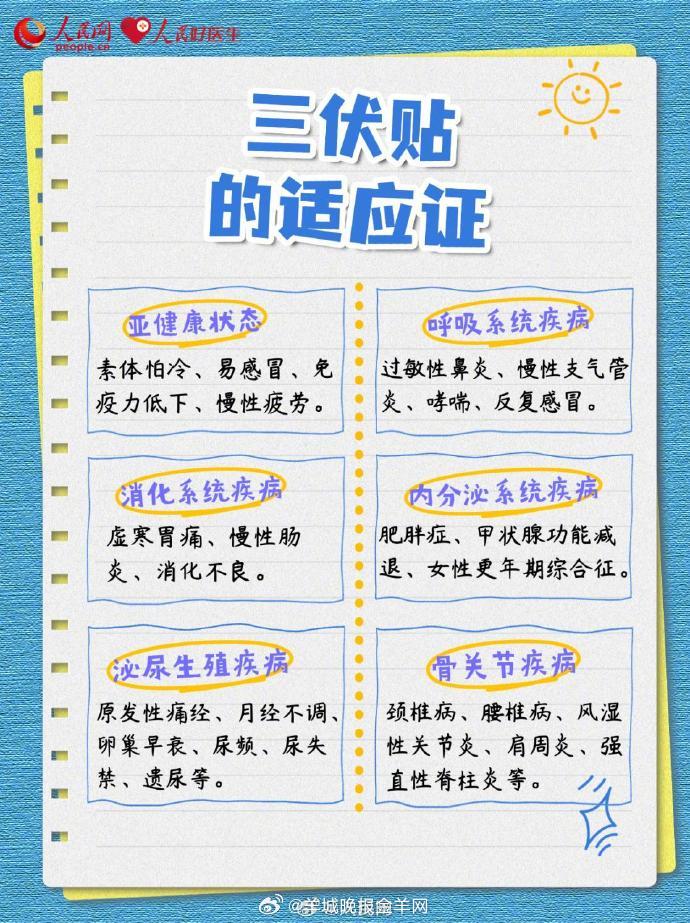 人民网
people.cn
人民好医生
三伏贴
的适应证
亚健康状态
素体怕冷、易感冒、免
疫力低下、慢性疲劳。
呼吸系统疾病
过敏性鼻炎、慢性支气管
炎、哮喘、反复感冒。
消化系统疾病
虚寒胃痛、慢性肠
炎、消化不良。
内分泌系统疾病
肥胖症、甲状腺功能减
退、女性更年期综合征。
泌尿生殖疾病
原发性痛经、月经不调、
卵巢早衰、尿频、尿失
禁、遗尿等。
骨关节疾病
颈椎病、腰椎病、风湿
性关节炎、肩周炎、强
直性脊柱炎等。
@羊城晚报金羊网